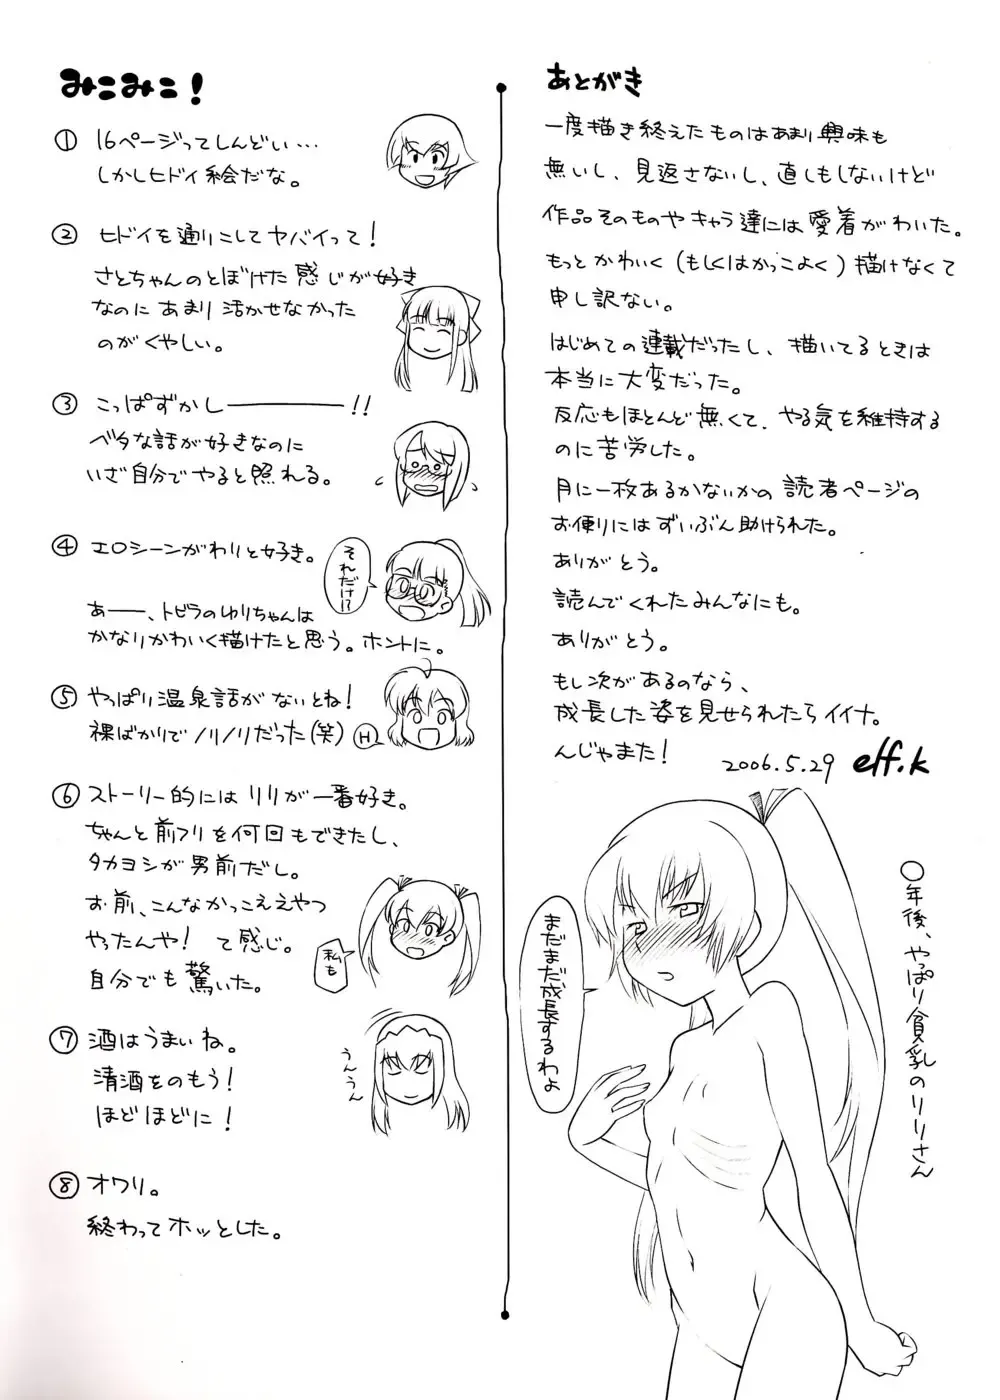 みこみこ！
① 16ページってしんどい…
しかしヒドイ絵だな。
② ヒドイを通りこしてヤバイって！
さとちゃんのとぼけた感じが好き
なのにあまり活かせなかった
のがくやしい。
③ こっぱずかしーーー！！
ベタな話が好きなのに
いざ自分でやると照れる。
④ エロシーンがわりと好き。
それだけ!?
あーー、トビラのゆりちゃんは
かなりかわいく描けたと思う。ホントに。
⑤ やっぱり温泉話がないとね！
裸ばかりでノリノリだった(笑)
H
⑥ ストーリー的にはリリが一番好き。
ちゃんと前フリを何回もできたし、
タカヨシが男前だし。
お前、こんなかっこええやつ
やったんや！て感じ。
自分でも驚いた。
私も
⑦ 酒はうまいね。
清酒をのもう！
ほどほどに！
うんうん
⑧ オワリ。
終わってホッとした。
あとがき
一度描き終えたものはあまり興味も
無いし、見返さないし、直しもしないけど
作品そのものやキャラ達には愛着がわいた。
もっとかわいく（もしくはかっこよく）描けなくて
申し訳ない。
はじめての連載だったし、描いてるときは
本当に大変だった。
反応もほとんど無くて、やる気を維持する
のに苦労した。
月に一枚あるかないかの読者ページの
お便りにはずいぶん助けられた。
ありがとう。
読んでくれたみんなにも。
ありがとう。
もし次があるのなら、
成長した姿を見せられたらイイナ。
んじゃまた！
2006.5.29 elf.k
〇年後、やっぱり貧乳のリリさん
まだまだ成長するわよ